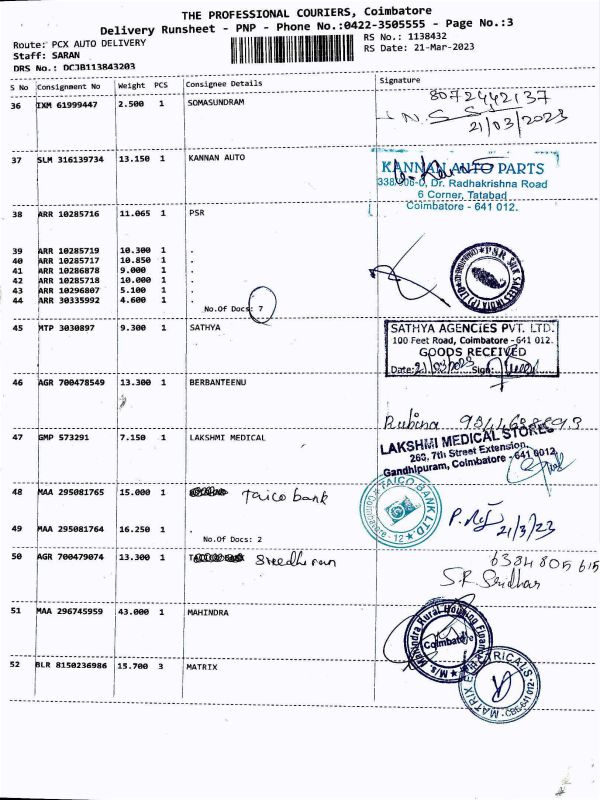 THE PROFESSIONAL COURIERS, Coimbatore
Delivery Runsheet - PNP - Phone No.:0422-3505555 - Page No.:3
Route: PCX AUTO DELIVERY
RS No.: 1138432
Staff: SARAN
RS Date: 21-Mar-2023
DRS No.: DCJB113843203
S No Consignment No Weight PCS Consignee Details Signature
36 IXM 61999447 2.500 1 SOMASUNDRAM
8072442137
21/03/2023
37 SLM 316139734 13.150 1 KANNAN AUTO
KANNAN AUTO PARTS
338/306-0, Dr. Radhakrishna Road
6 Corner, Tatabad
Coimbatore - 641 012.
38 ARR 10285716 11.065 1 PSR
39 ARR 10285719 10.300 1 .
40 ARR 10285717 10.850 1 .
41 ARR 10286878 9.000 1 .
42 ARR 10285718 10.000 1 .
43 ARR 10296807 5.100 1 .
44 ARR 30335992 4.600 1 .
No.Of Docs: 7
PSR SILK SAREES INDIA (P) LTD
45 MTP 3030897 9.300 1 SATHYA
SATHYA AGENCIES PVT. LTD.
100 Feet Road, Coimbatore - 641 012.
GOODS RECEIVED
Date: 21/03/2023 Sign:
46 AGR 700478549 13.300 1 BERBANTEENU
Rubina
47 GMP 573291 7.150 1 LAKSHMI MEDICAL
LAKSHMI MEDICAL STORES
260, 7th Street Extension,
Gandhipuram, Coimbatore - 641 0012.
48 MAA 295081765 15.000 1 Taico bank
TAICO BANK LTD.
Coimbatore - 12
49 MAA 295081764 16.250 1 .
No.Of Docs: 2
21/3/23
50 AGR 700479074 13.300 1 Sreedharan
6384805615
S.R. Sridhar
51 MAA 296745959 43.000 1 MAHINDRA
M/s. Mahindra Rural Housing Finance
Coimbatore
52 BLR 8150236986 15.700 3 MATRIX
MATRIX ELECTRICALS
CBE-641 012